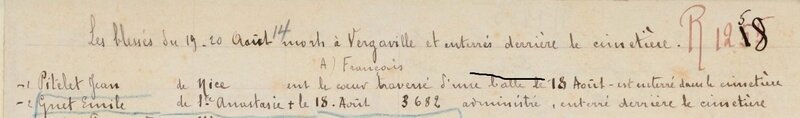 Les blessés du 19-20 Août 14 morts à Vergaville et enterrés derrière le cimetière. R 1255 18
A) Français
-1 Pitelet Jean de Nice eut le coeur traversé d'une balle le 18 Août - est enterré dans le cimetière
-2 Gnet Emile de Ste Anastarie + le 18. Août 3682 administré, enterré derrière le cimetière